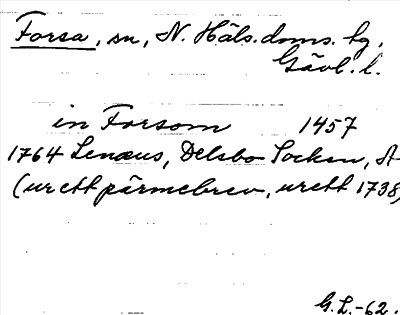 Forsa, sn, N. Häls. doms. hg,
Gävl. l.
in Forsom 1457
1764 Lenæus, Delsbo Socken, A
(ur ett pärmebrev, urett 1738)
G.L.-62.